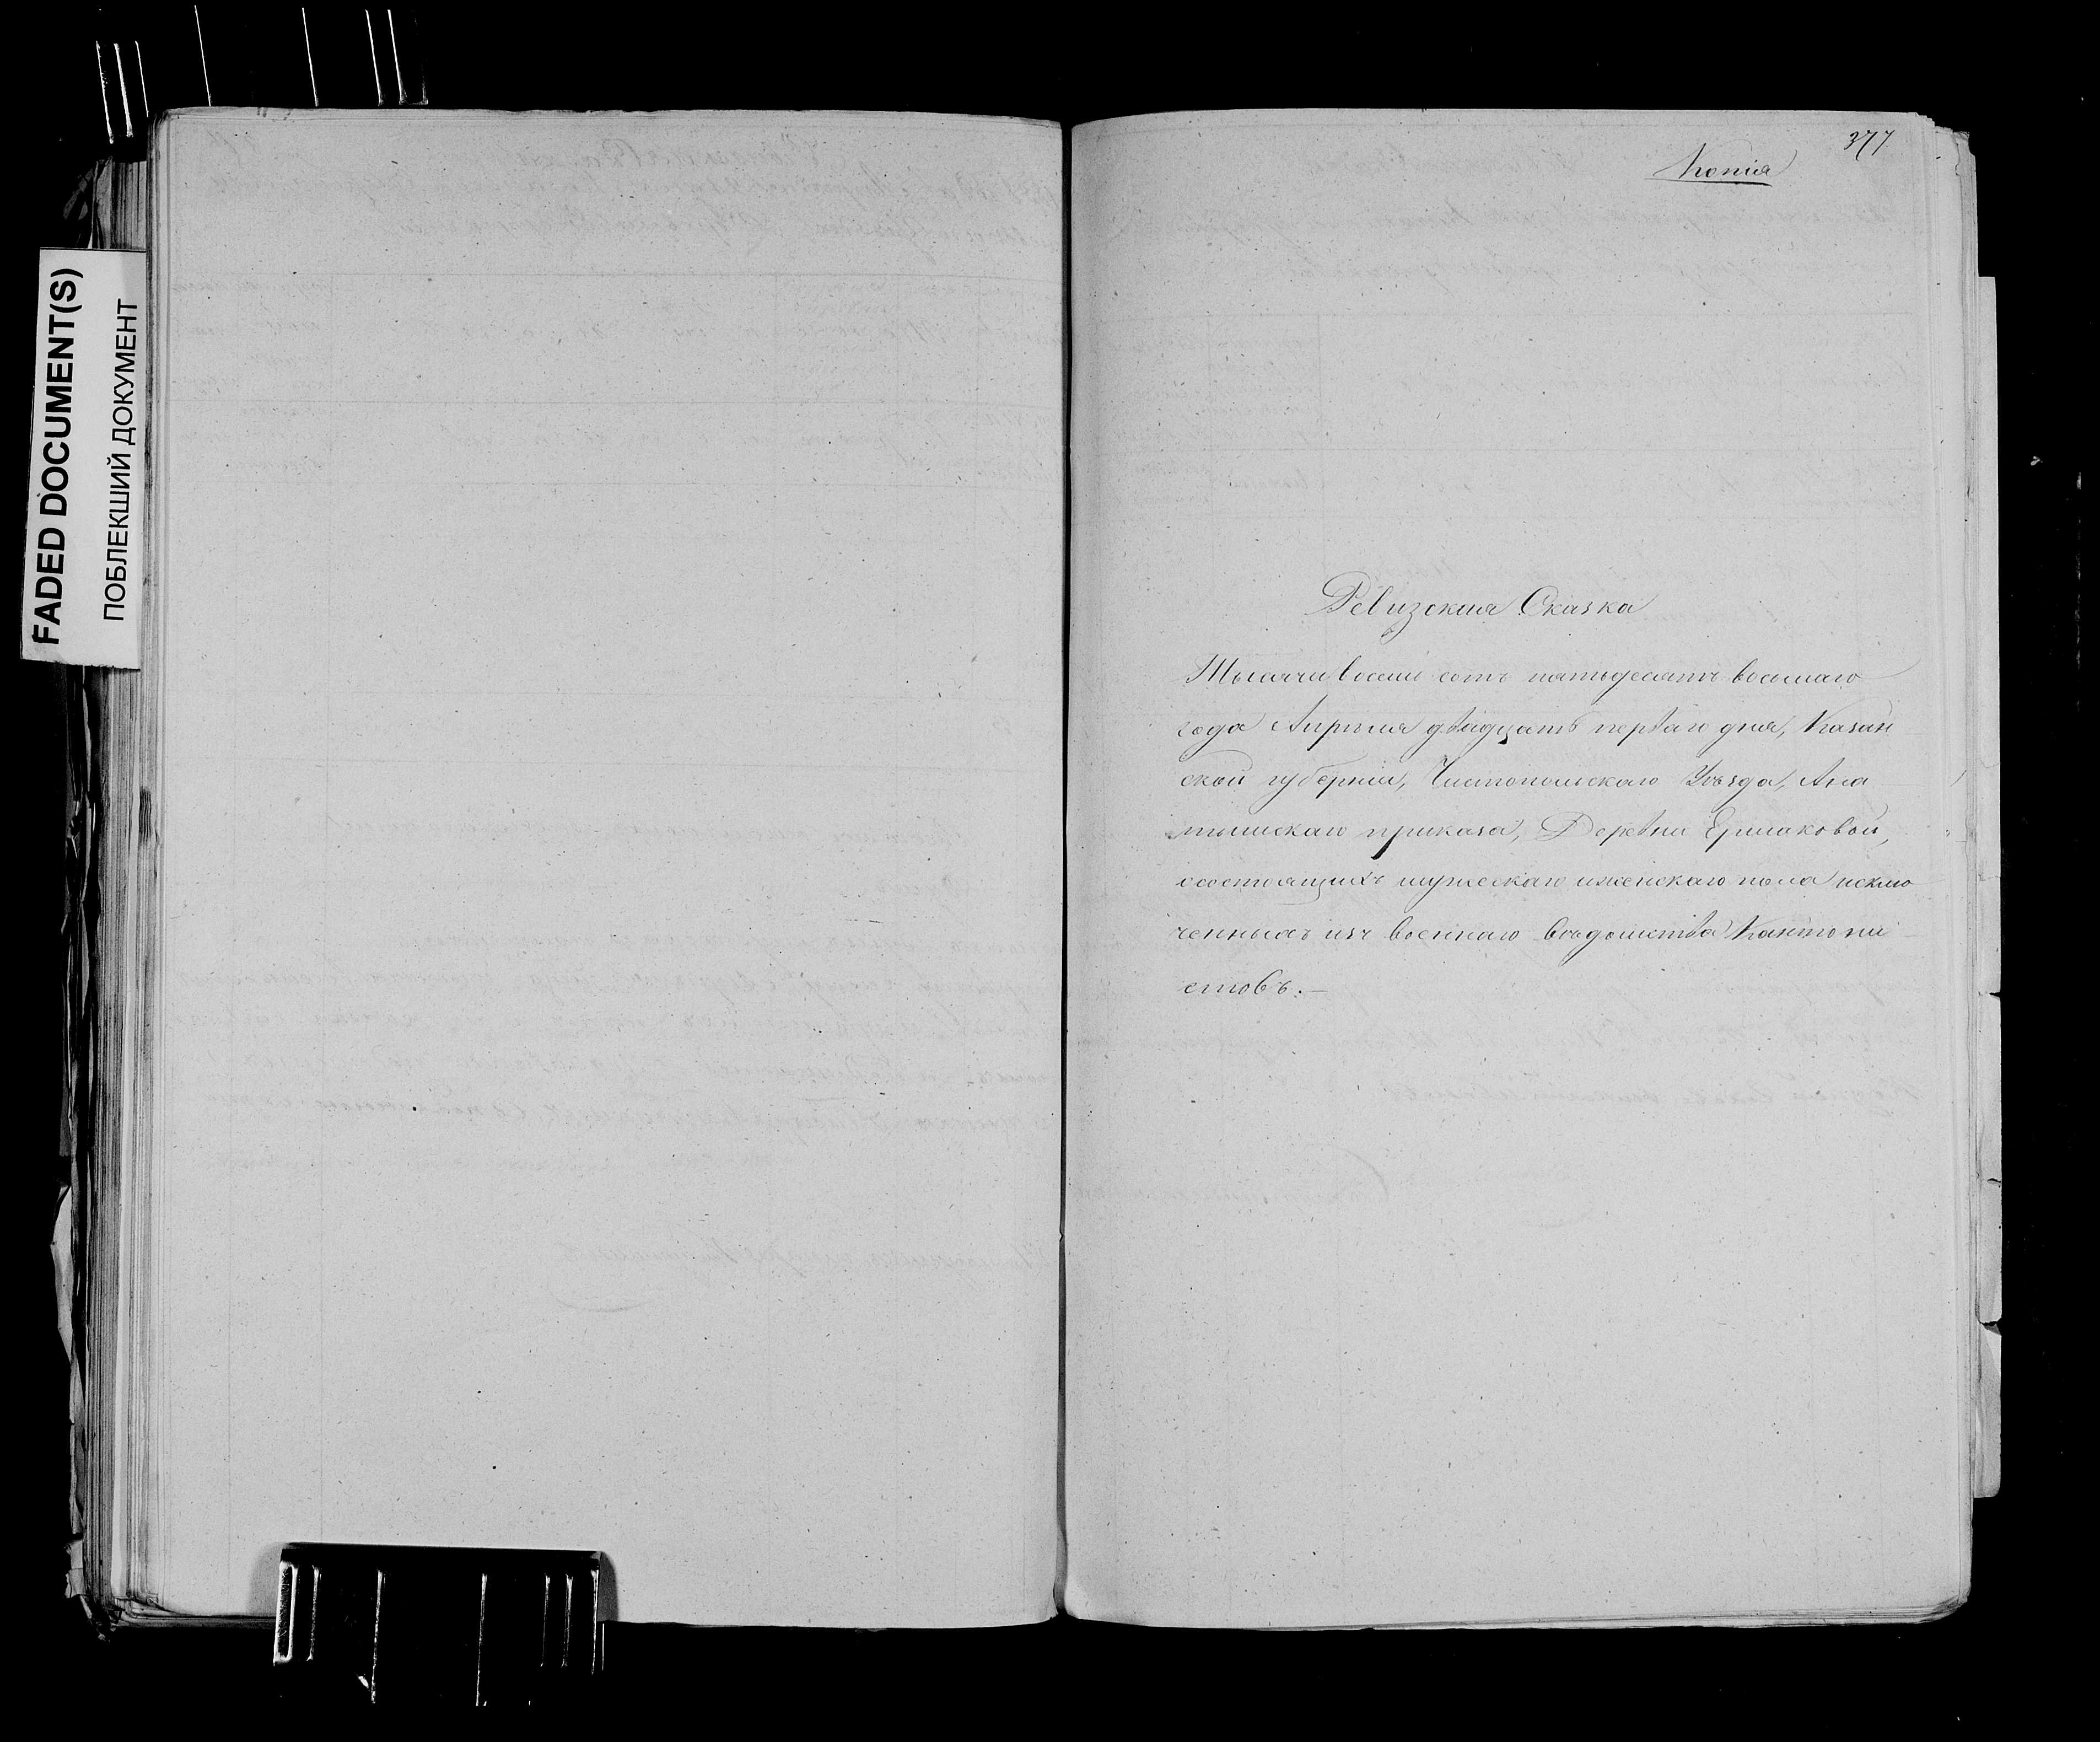 FADED DOCUMENT(S)
ПОБЛЕКШИЙ ДОКУМЕНТ
377
Копія
Ревизская Сказка
Тысяча восемь сотъ пятьдесятъ восьмаго
года Апрѣля двадцать перваго дня, Казан
ской губерніи, Чистопольскаго Уѣзда, Ала
тышскаго приказа, Деревни Ермаковой,
о состоящихъ мужескаго и женскаго пола исклю
ченныхъ изъ военнаго вѣдомства Кантони
стовъ.—